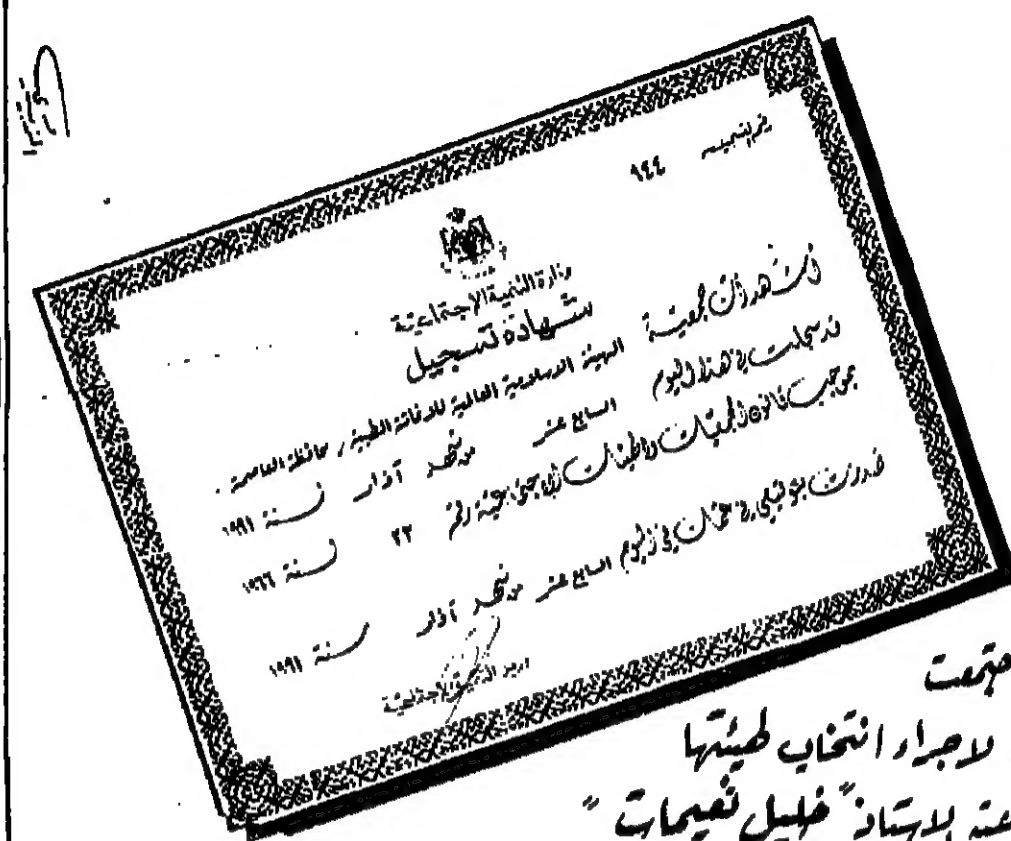 رقم التسجيل ٩٤٤
وزارة التنمية الاجتماعية
شهادة تسجيل
أشهد أن جمعية الهيئة الاسلامية العالمية للاغاثة الطبية / محافظة العاصمة .
قد سجلت في هذا اليوم السابع عشر من شهر آذار لسنة ١٩٩١
بموجب قانون الجمعيات والهيئات الاجتماعية رقم ٣٣ لسنة ١٩٦٦
صدرت بتوقيعي في عمان في اليوم السابع عشر من شهر آذار سنة ١٩٩١
وزير التنمية الاجتماعية
جتمعت
لاجراء انتخاب لهيئتها
الاستاذ "خليل نعيمات"